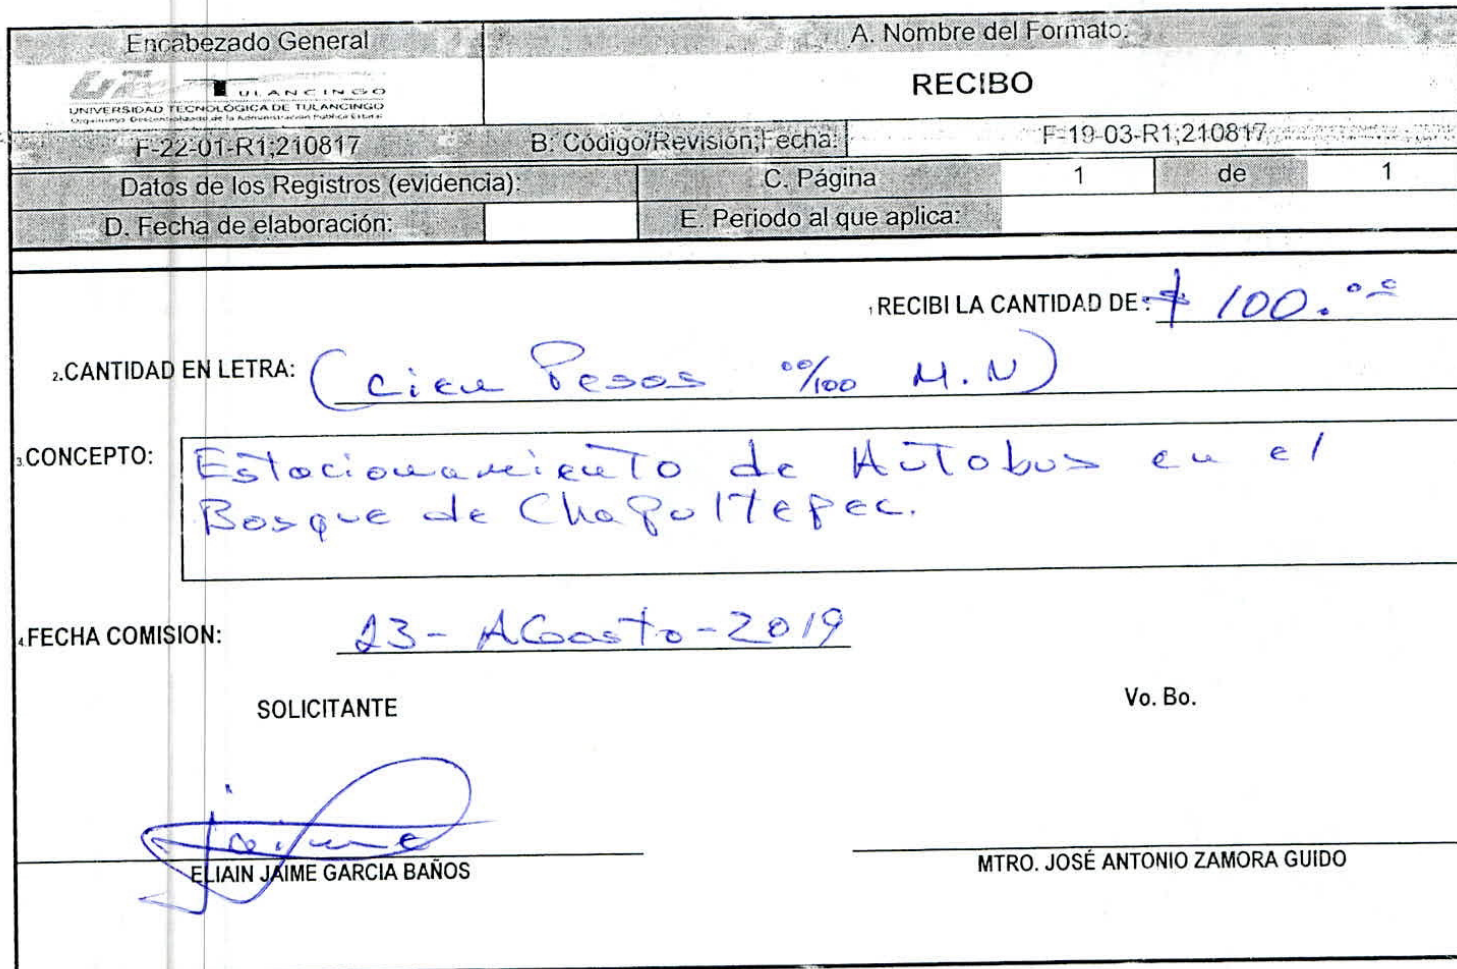 Encabezado General
A. Nombre del Formato:
TULANCINGO
UNIVERSIDAD TECNOLÓGICA DE TULANCINGO
Organismo Descentralizado de la Administración Pública Estatal
RECIBO
F-22-01-R1;210817
B. Código/Revisión;Fecha:
F-19-03-R1;210817
Datos de los Registros (evidencia):
C. Página
1
de
1
D. Fecha de elaboración:
E. Periodo al que aplica:
1 RECIBI LA CANTIDAD DE: $ 100.00
2.CANTIDAD EN LETRA: (Cien Pesos 00/100 M.N)
3.CONCEPTO: Estacionamiento de Autobus en el
Bosque de Chapultepec.
4.FECHA COMISION: 23-Agosto-2019
SOLICITANTE
Vo. Bo.
Jaime
ELIAIN JAIME GARCIA BAÑOS
MTRO. JOSÉ ANTONIO ZAMORA GUIDO